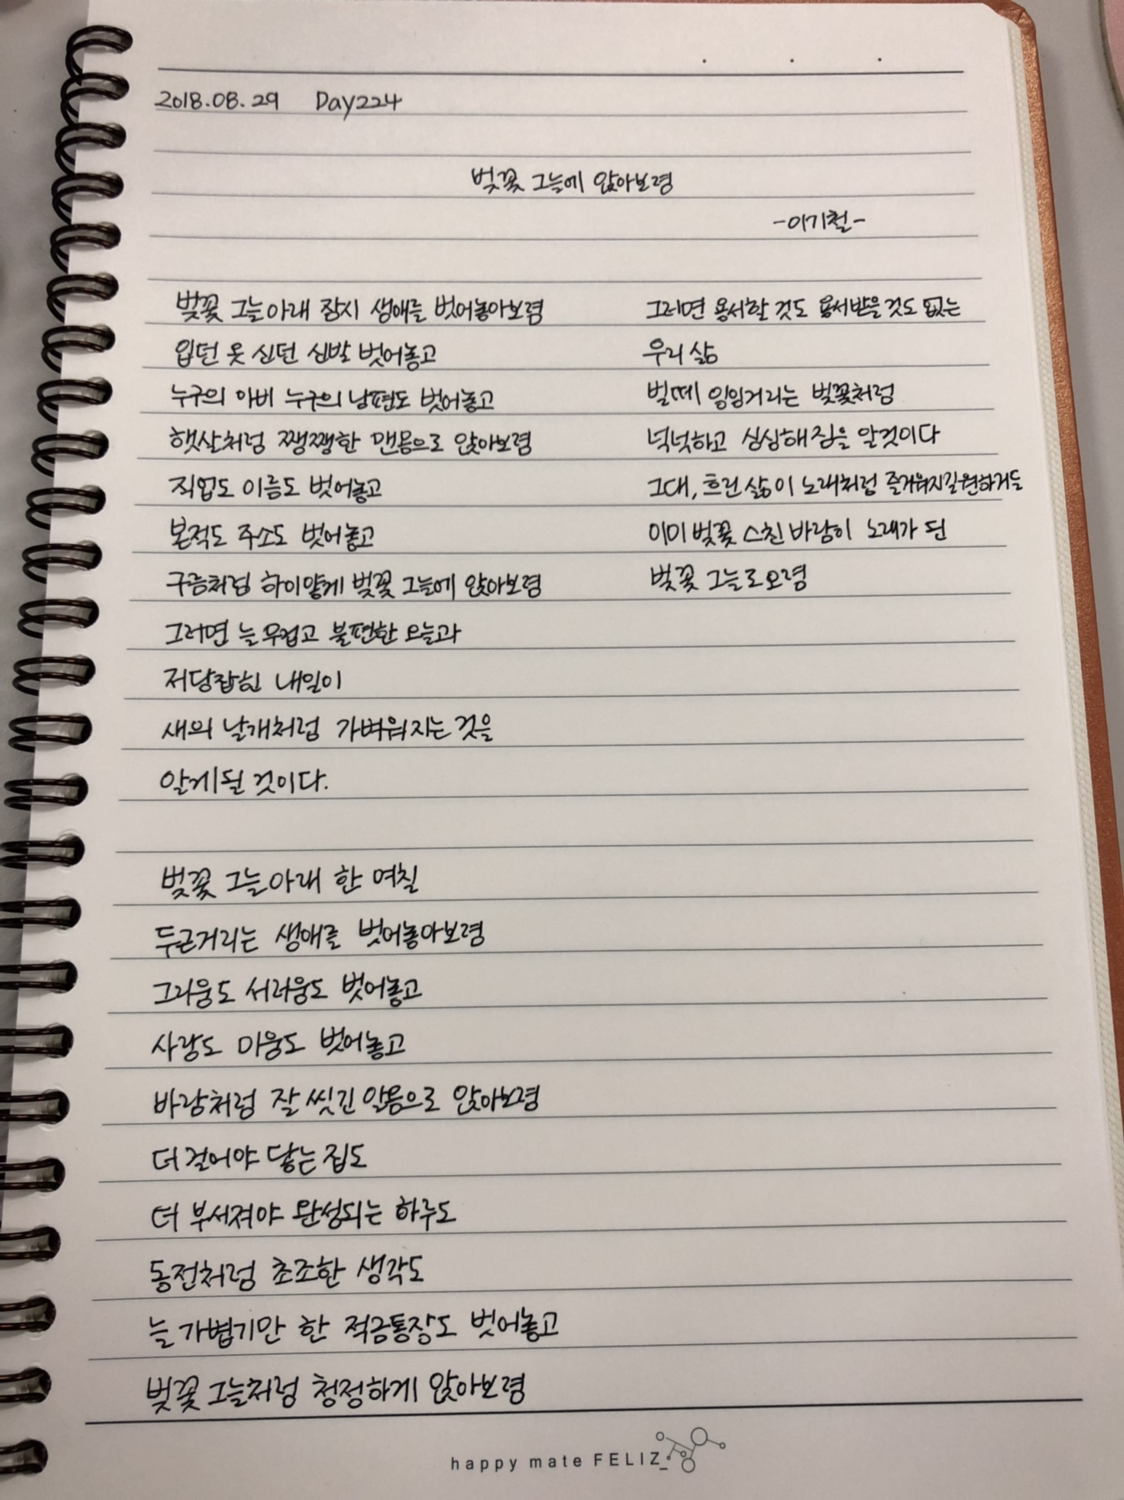 2018.08.29 Day224
벚꽃 그늘에 앉아보렴
-이기철-
벚꽃 그늘 아래 잠시 생애를 벗어놓아보렴
입던 옷 신던 신발 벗어놓고
누구의 아비 누구의 남편도 벗어놓고
햇살처럼 쨍쨍한 맨몸으로 앉아보렴
직업도 이름도 벗어놓고
본적도 주소도 벗어놓고
구름처럼 하이얗게 벚꽃 그늘에 앉아보렴
그러면 늘 무겁고 불편한 오늘과
저당잡힌 내일이
새의 날개처럼 가벼워지는 것을
알게 될 것이다.
벚꽃 그늘 아래 한 며칠
두근거리는 생애를 벗어놓아보렴
그리움도 서러움도 벗어놓고
사랑도 미움도 벗어놓고
바람처럼 잘 씻긴 알몸으로 앉아보렴
더 걸어야 닿는 집도
더 부서져야 완성되는 하루도
동전처럼 초조한 생각도
늘 가볍기만 한 적금통장도 벗어놓고
벚꽃 그늘처럼 청정하게 앉아보렴
그러면 용서할 것도 용서받을것도 없는
우리 삶
벌떼 잉잉거리는 벚꽃처럼
넉넉하고 싱싱해짐을 알것이다
그대, 흐린 삶이 노래처럼 즐거워지길 원하거든
이미 벚꽃 스친 바람이 노래가 된
벚꽃 그늘로 오렴
happy mate FELIZ_